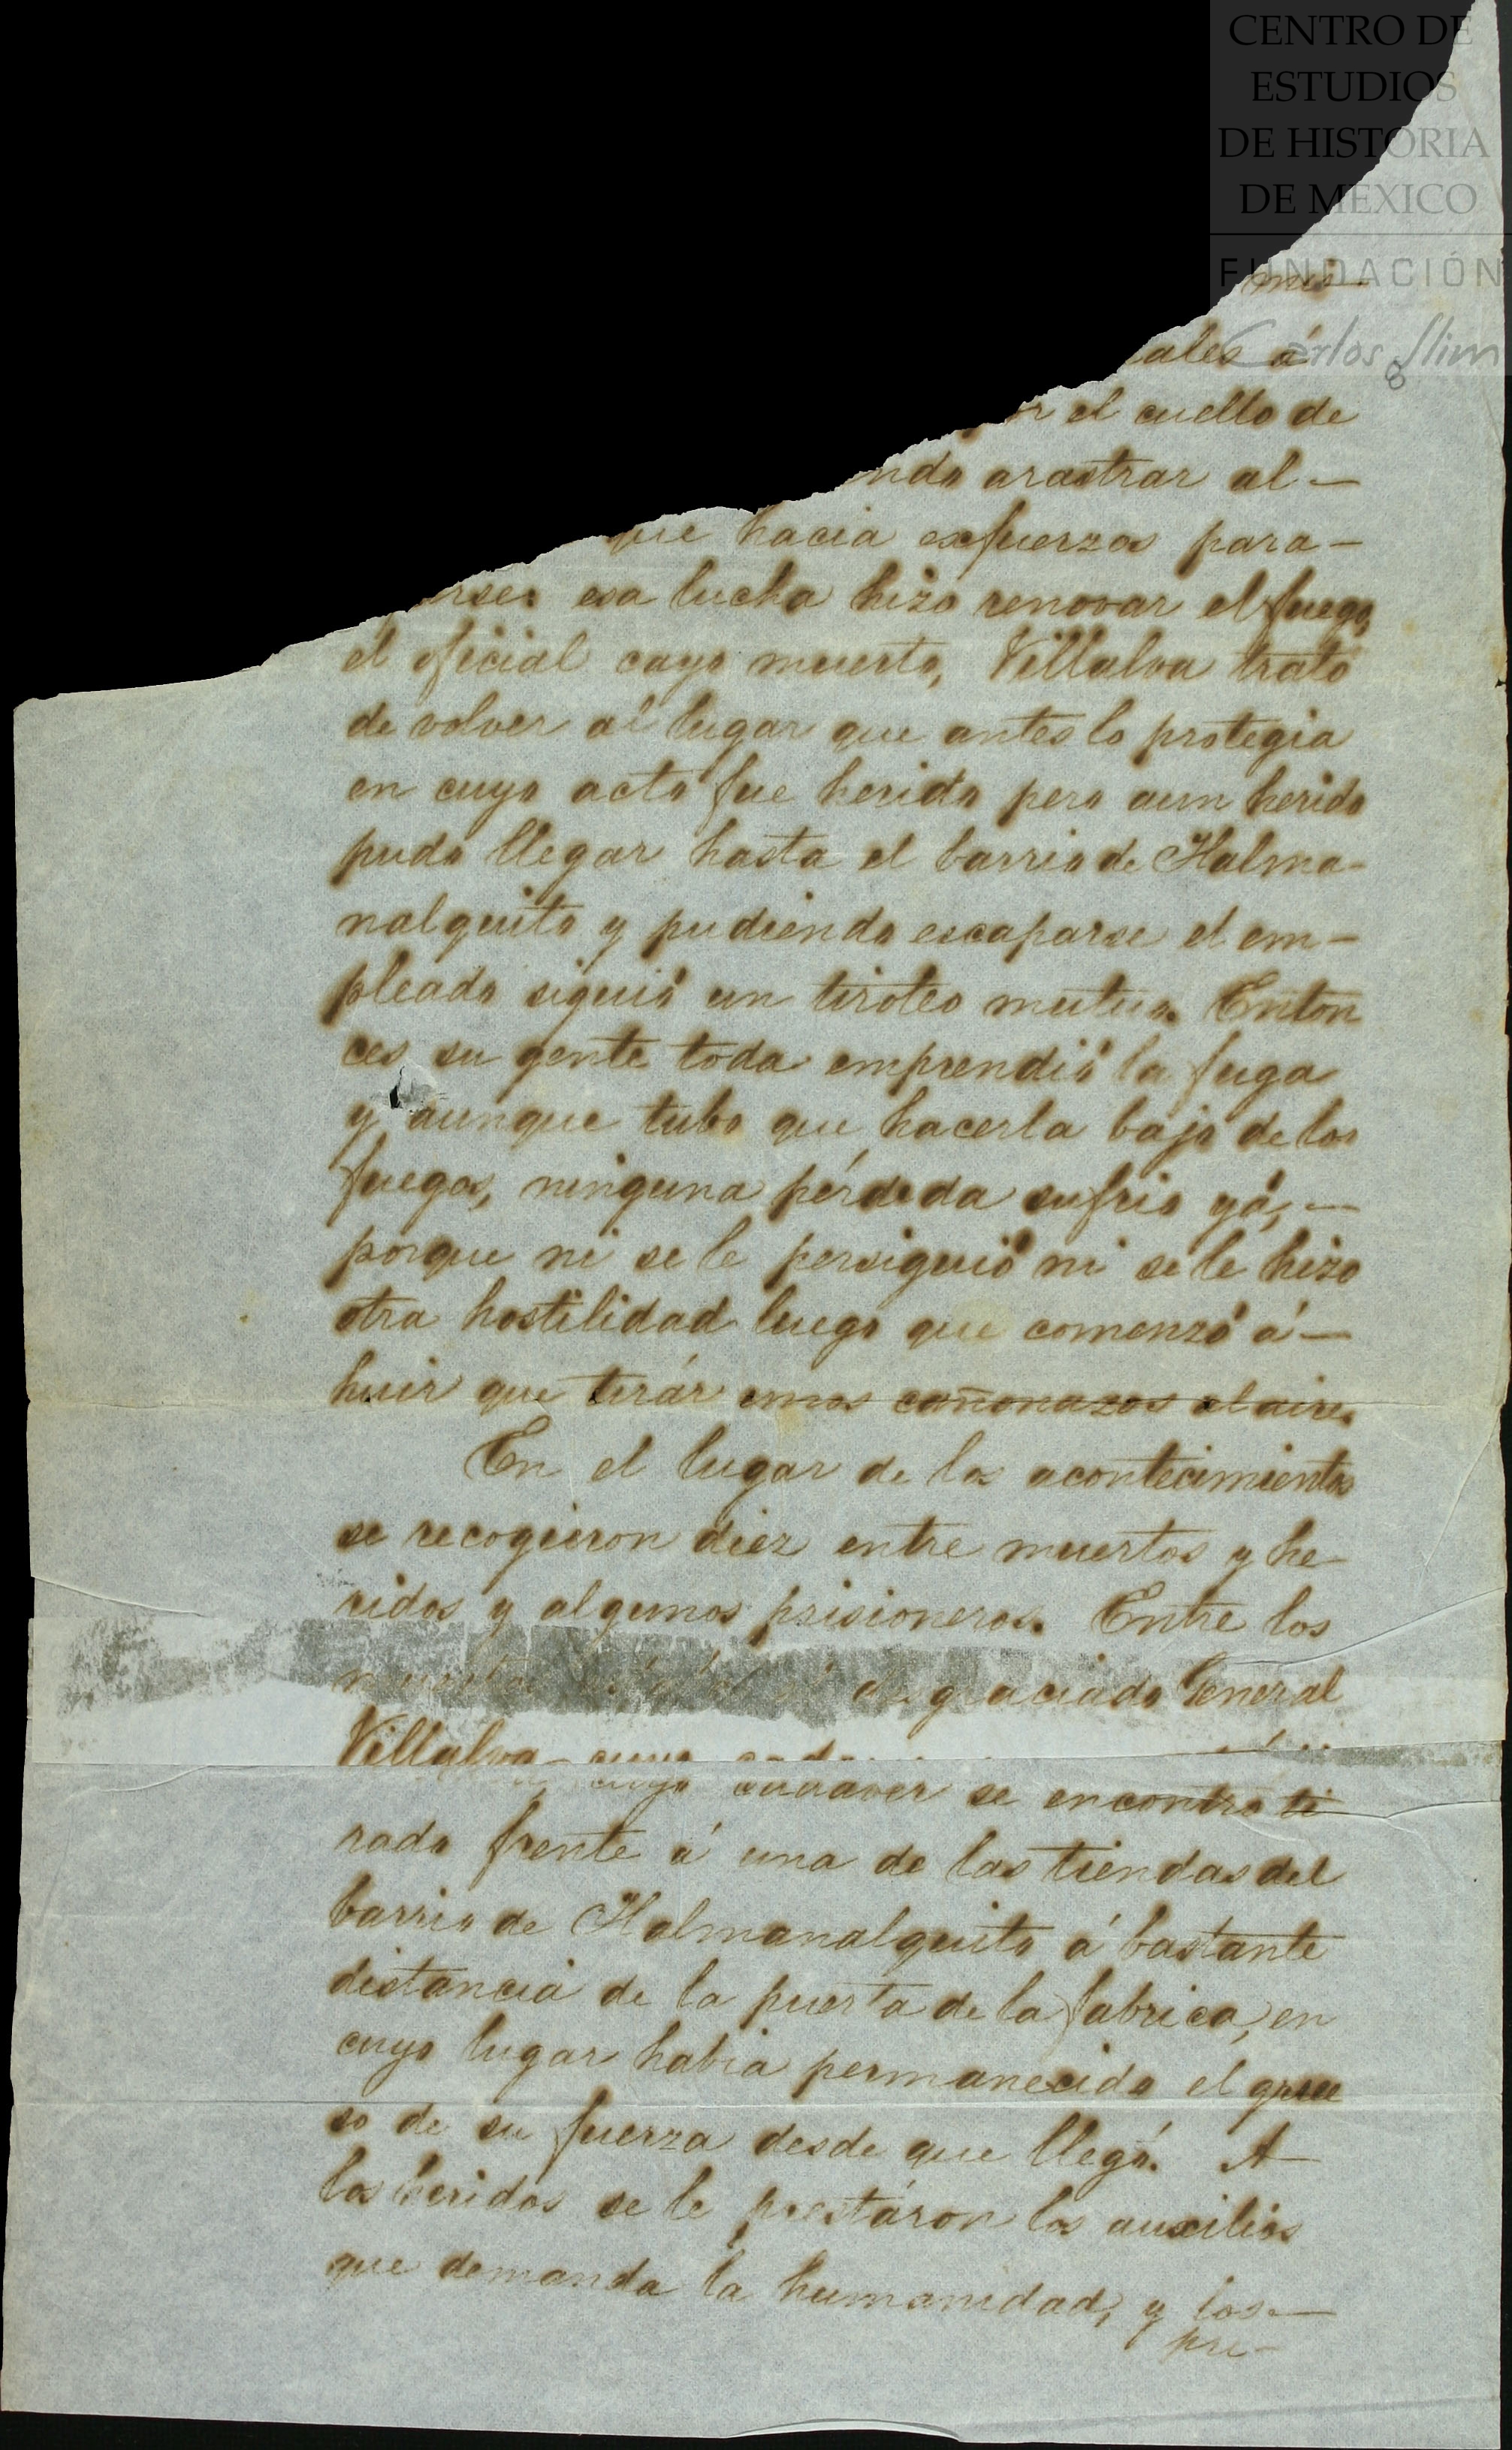 CENTRO DE
ESTUDIOS
DE HISTORIA
DE MEXICO
FUNDACIÓN
Carlos Slim
8
mis-
ales á
el cuello de
ndo arastrar al-
que hacia esfuerzos para-
arse. esa lucha hizo renovar el fuego,
el oficial cayo muerto, Villalva trató
de volver al lugar que antes lo protegia
en cuyo acto fue herido pero aun herido
pudo llegar hasta el barrio de Tlalma-
nalquito y pudiendo escaparse el em-
pleado siguió un tiroteo mutuo. Enton
ces su gente toda emprendió la fuga
y aunque tubo que hacerla bajo de los
fuegos, ninguna pérdida sufrio yá, -
porque ni se le persiguió ni se le hizo
otra hostilidad luego que comenzó á -
huir que tirár unos cañonazos al aire.
En el lugar de los acontecimientos
se recogieron diez entre muertos y he-
ridos y algunos prisioneros. Entre los
desgraciado General
Villalva, cuyo cadaver se encontro ti
rado frente á una de las tiendas del
barrio de Tlalmanalquito á bastante
distancia de la puerta de la fabrica, en
cuyo lugar habia permanecido el grue
so de su fuerza desde que llegó. A
los heridos se le prestáron los auxilios
que demanda la humanidad, y los-
pri-